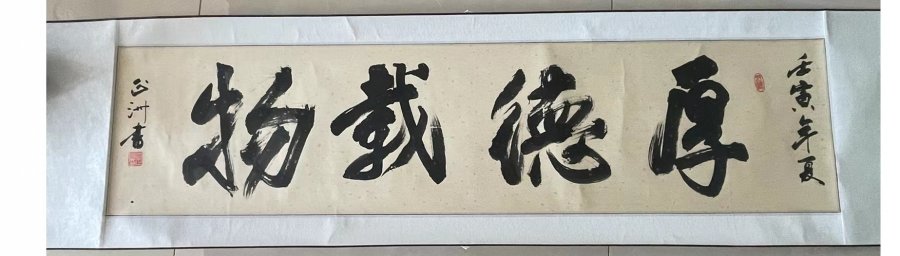 壬寅年夏
厚德载物
洲书